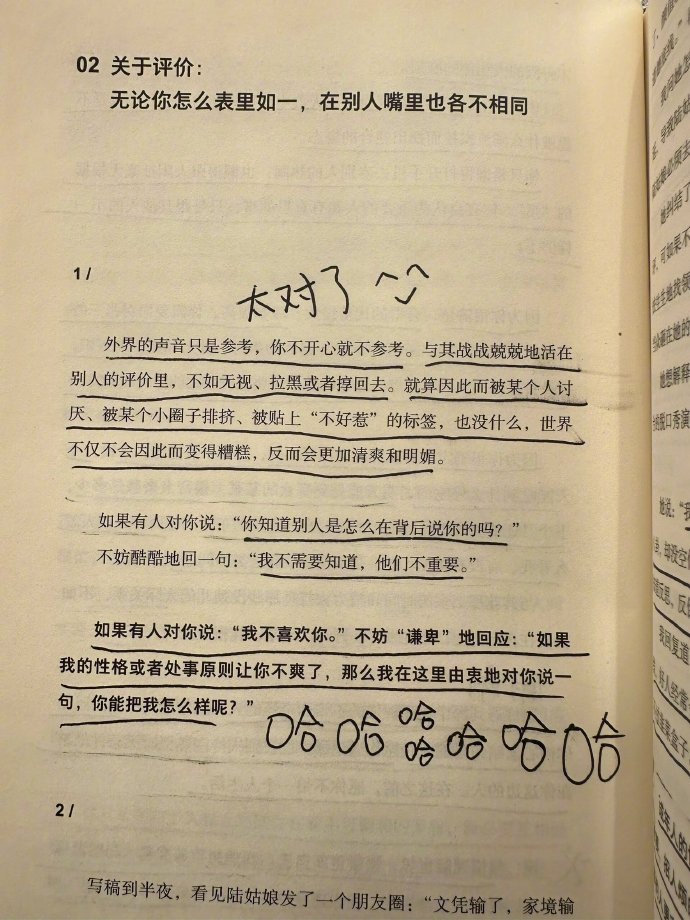 02 关于评价：
无论你怎么表里如一，在别人嘴里也各不相同
1 /
太对了
外界的声音只是参考，你不开心就不参考。与其战战兢兢地活在
别人的评价里，不如无视、拉黑或者撑回去。就算因此而被某个人讨
厌、被某个小圈子排挤、被贴上“不好惹”的标签，也没什么，世界
不仅不会因此而变得糟糕，反而会更加清爽和明媚。
如果有人对你说：“你知道别人是怎么在背后说你的吗？”
不妨酷酷地回一句：“我不需要知道，他们不重要。”
如果有人对你说：“我不喜欢你。”不妨“谦卑”地回应：“如果
我的性格或者处事原则让你不爽了，那么我在这里由衷地对你说一
句，你能把我怎么样呢？”
哈哈哈哈哈哈哈
2 /
写稿到半夜，看见陆姑娘发了一个朋友圈：“文凭输了，家境输